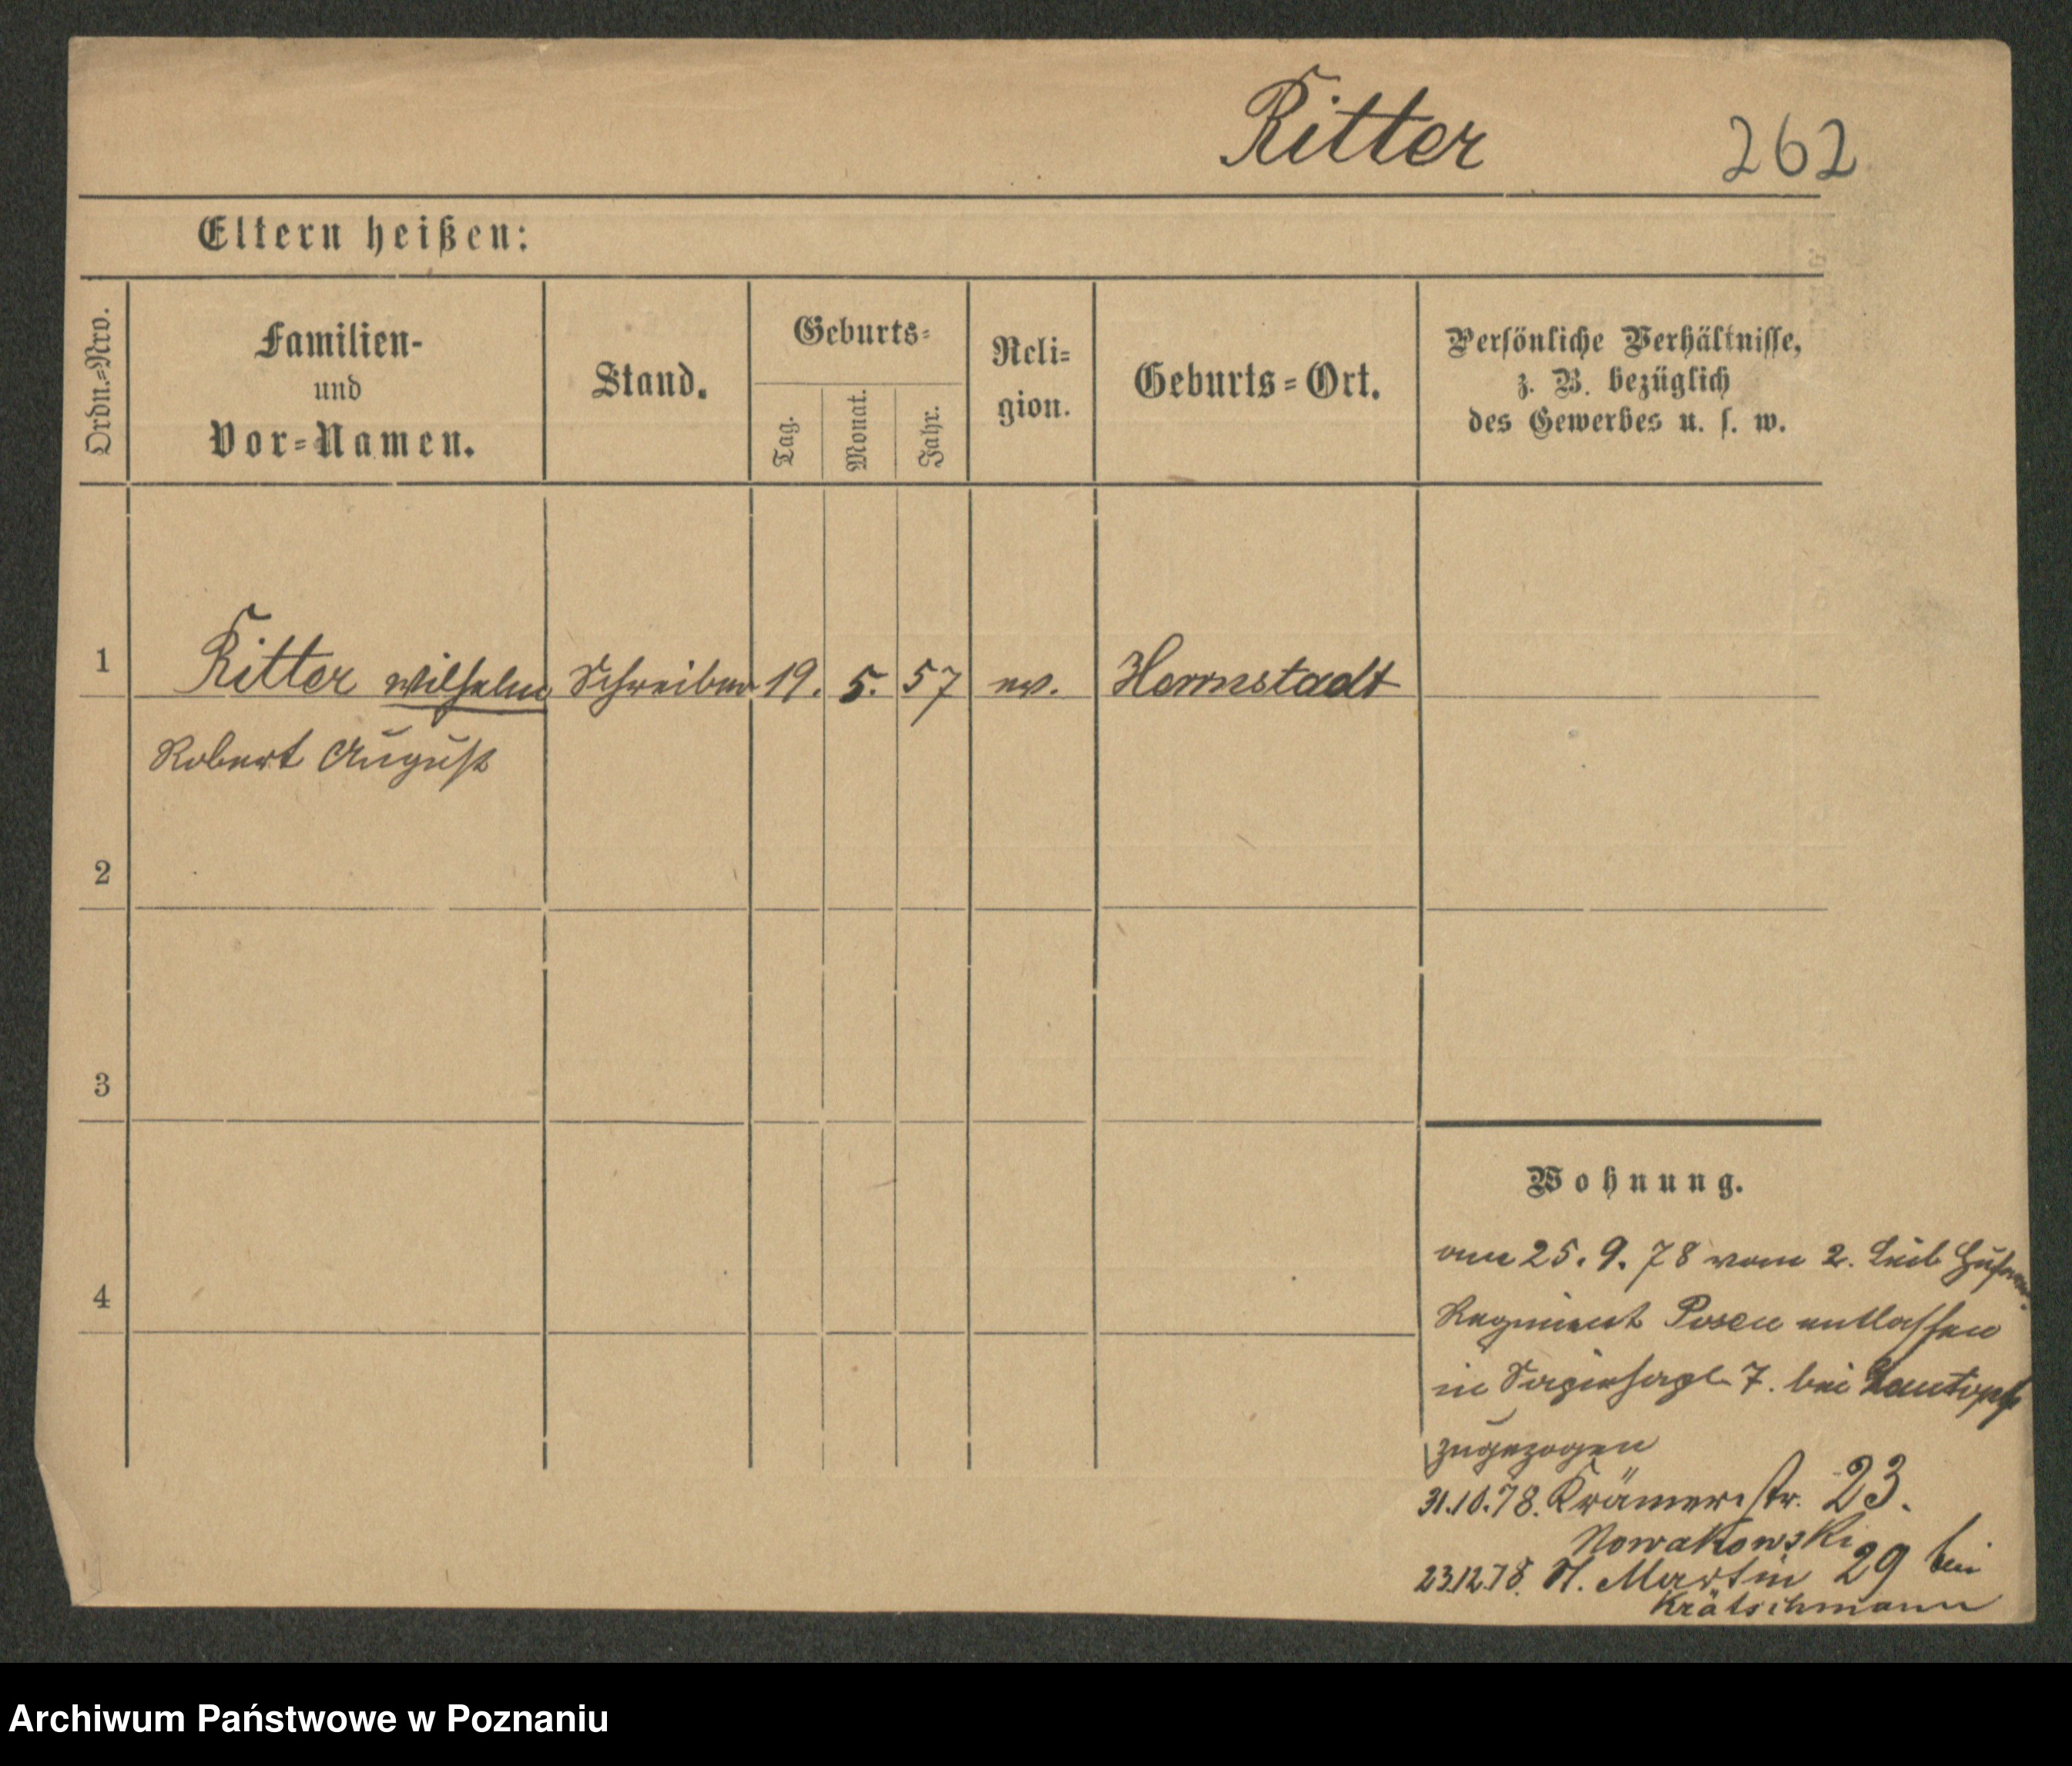 Ritter 262
Eltern heißen:
Ordn.=Nro.
Familien-
und
Vor=Namen.
Stand.
Geburts=
Tag.
Monat.
Jahr.
Reli=
gion.
Geburts=Ort.
Persönliche Verhältnisse,
z. B. bezüglich
des Gewerbes u. s. w.
1 Ritter Wilhelm Schreiber 19. 5. 57 ev. Herrnstadt
Robert August
2
3
4
Wohnung.
am 25.9.78 vom 2. Leib Husar.
Regiment Posen entlassen
in 7. bei
zugezogen
31.10.78. Krämerstr. 23.
Nowakowski
23.12.78. St. Martin 29 bei
Krätschmann
Archiwum Państwowe w Poznaniu